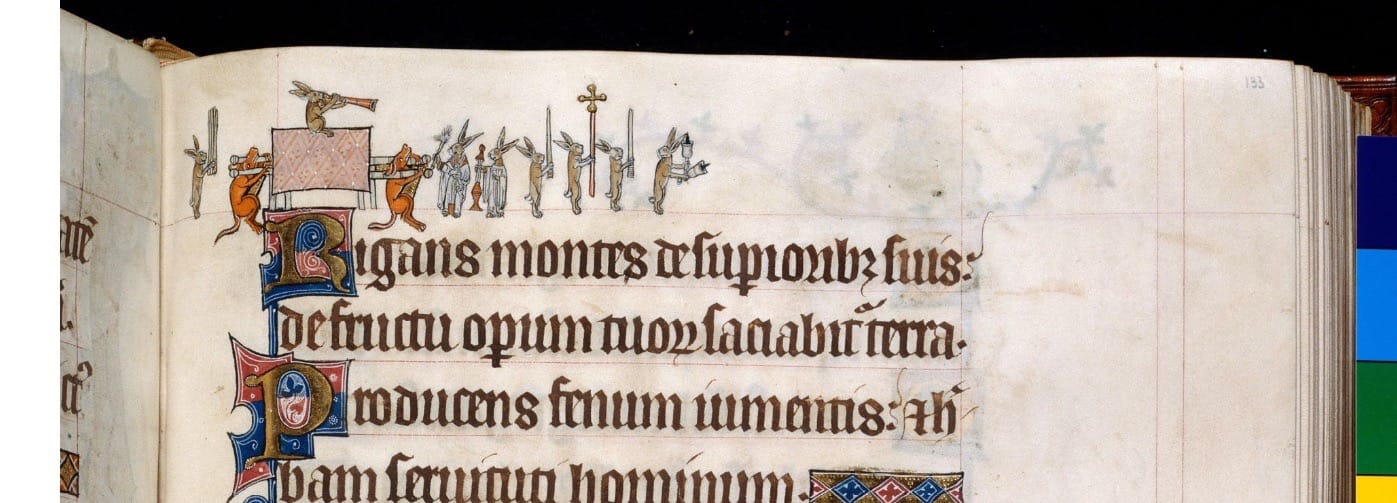 133
Rigans montes de suꝑioribꝫ suis:
de fructu oꝑum tuoꝝ saciabit᷑ terra.
Producens fenum iumentis: ⁊ h̛
bam seruituti hominum.